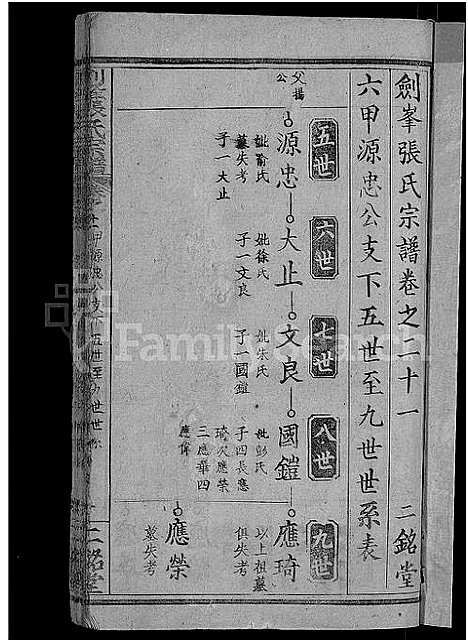 劍峯張氏宗譜卷之二十一
二銘堂
六甲源忠公支下五世至九世世系表
五世
六世
七世
八世
九世
父揚公
源忠
大止
文良
國鎧
應琦
妣喻氏
墓失考
子一大止
妣徐氏
子一文良
妣朱氏
子一國鎧
妣彭氏
子四長應
琦次應榮
三應華四
應偉
以上祖墓
俱失考
應榮
墓失考
甲源忠公支下五世至九世世系
二銘堂
FamilySearch